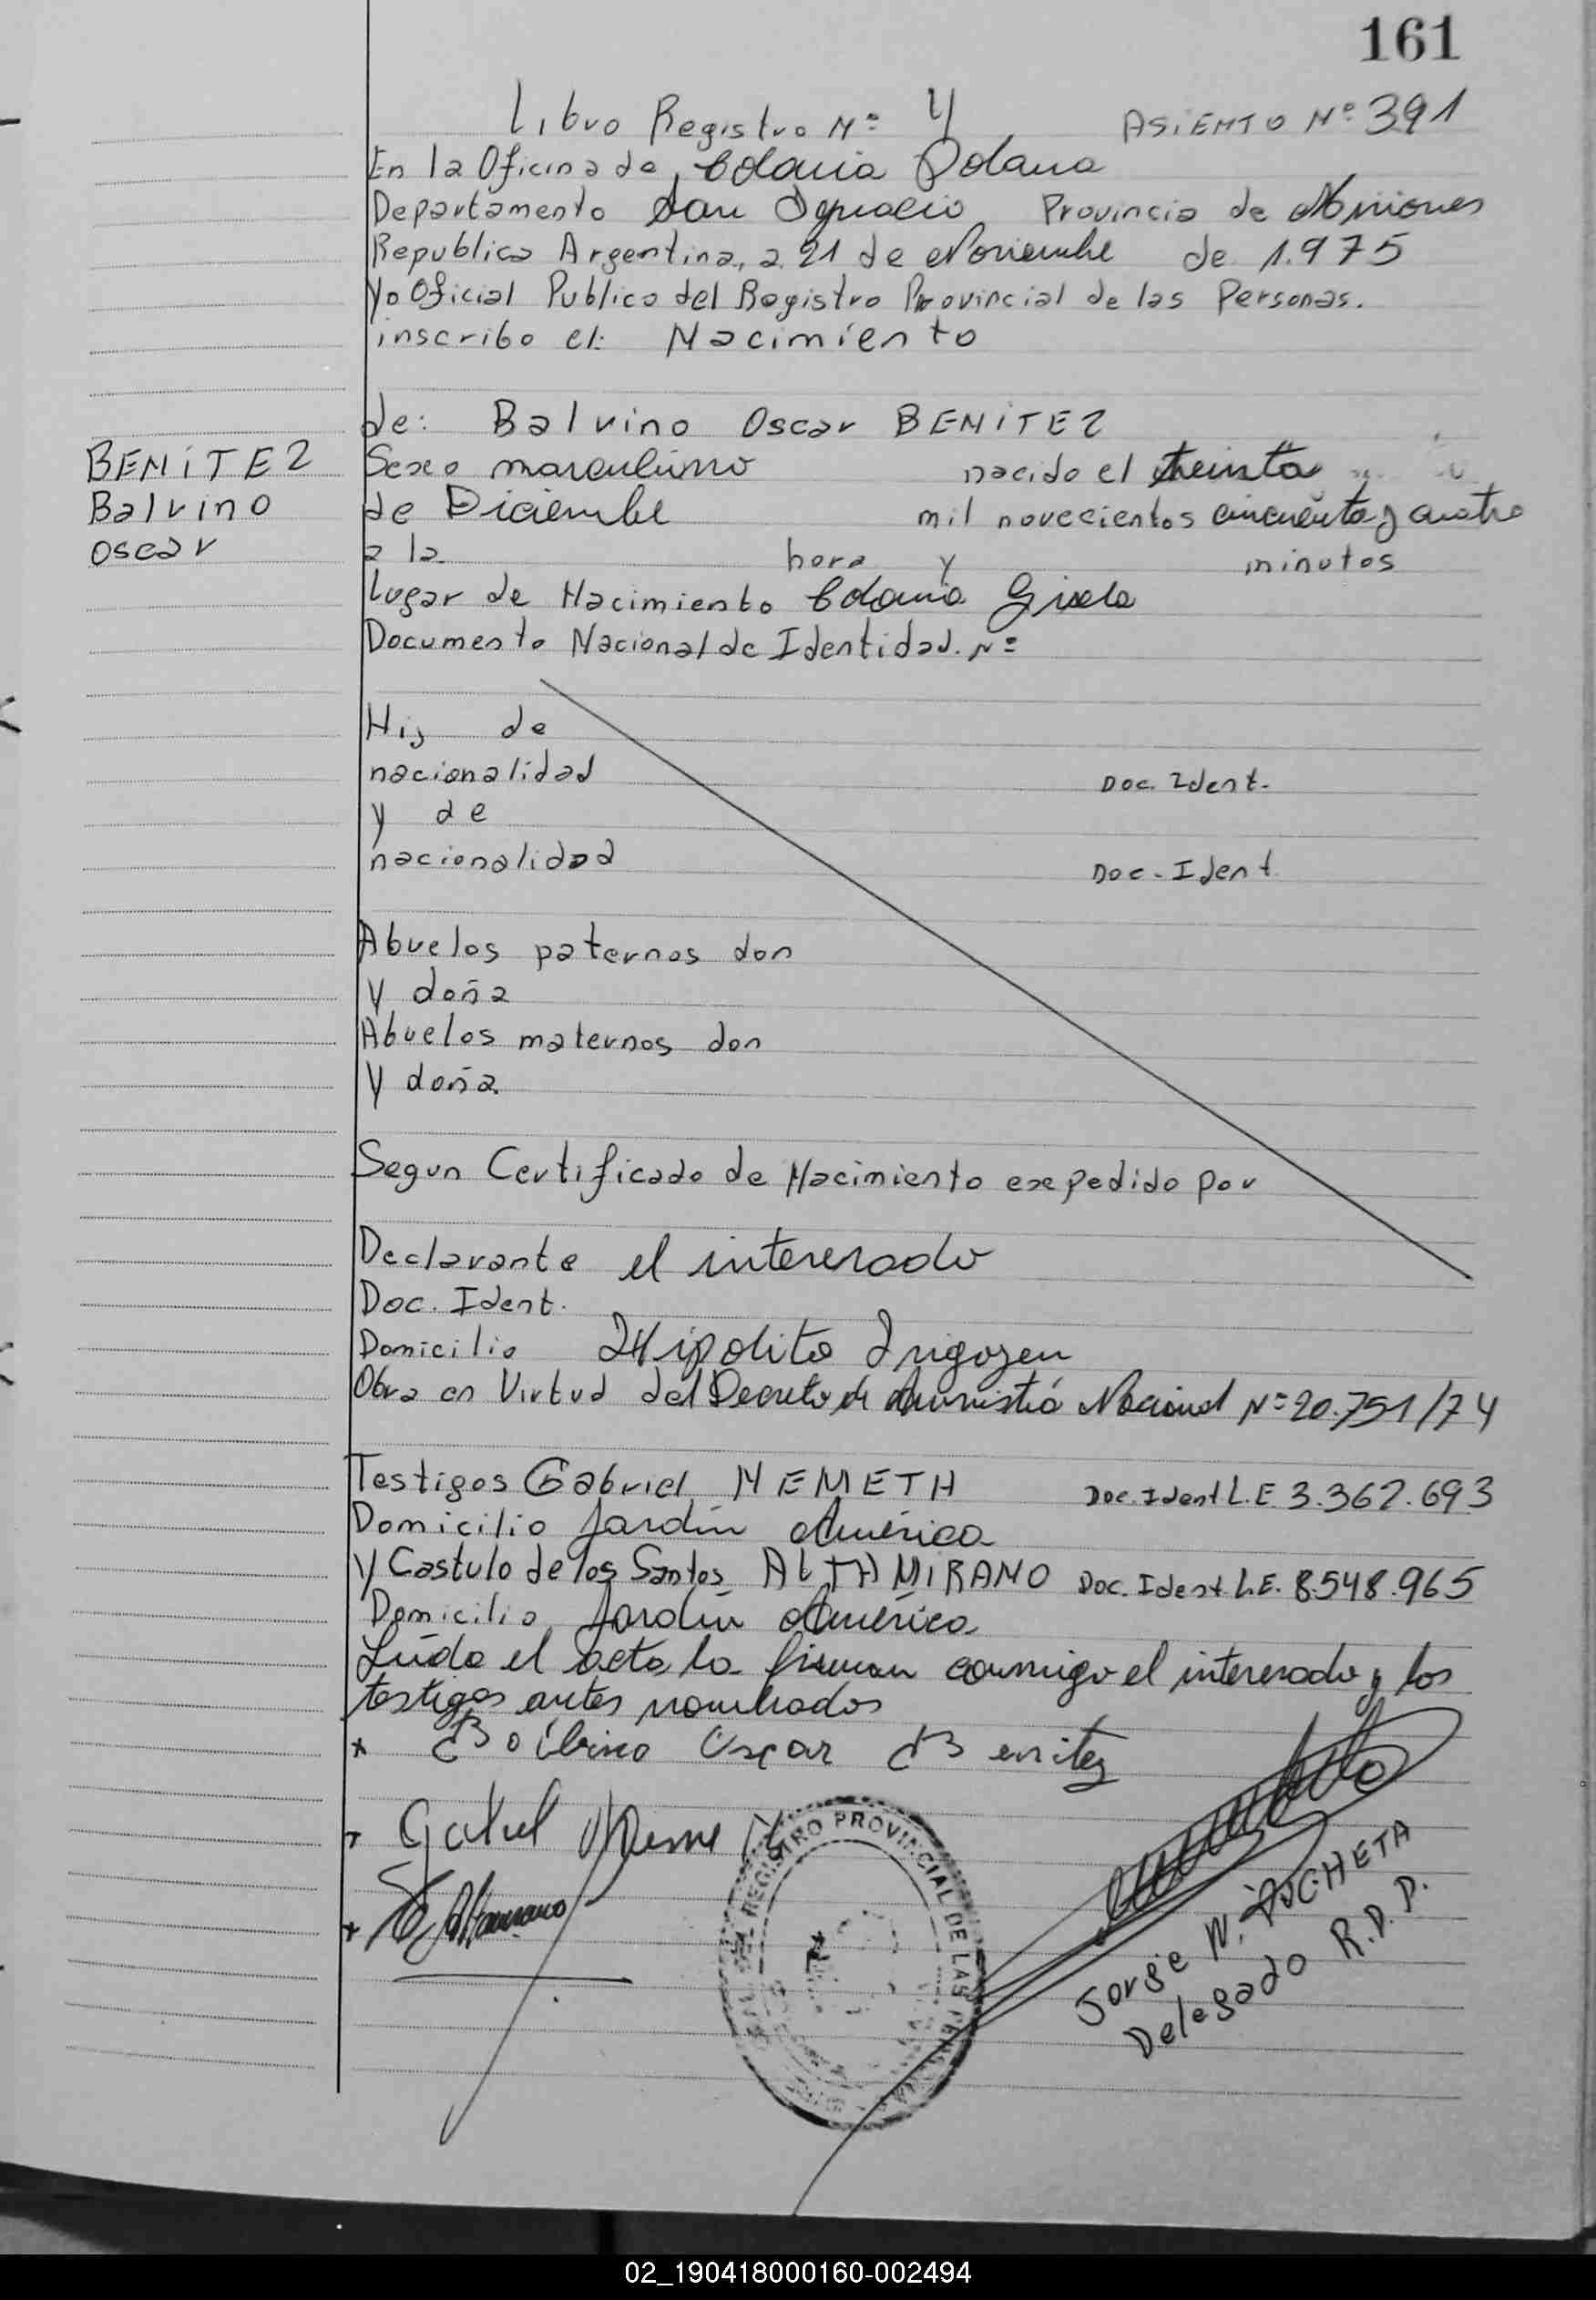 161
Libro Registro Nº 4 ASIENTO Nº 391
En la Oficina de Colonia Polana
Departamento San Ignacio Provincia de Misiones
Republica Argentina, a 21 de Noviembre de 1.975
Yo Oficial Publico del Registro Provincial de las Personas.
inscribo el: Nacimiento
de: Balvino Oscar BENITEZ
BENITEZ
Balvino
Oscar
Sexo masculino nacido el treinta
de Diciembre mil novecientos cincuenta y cuatro
a la hora y minutos
Lugar de Nacimiento Colonia Gisela
Documento Nacional de Identidad. Nº
Hij de
nacionalidad Doc. Ident.
y de
nacionalidad Doc. Ident.
Abuelos paternos don
y doña
Abuelos maternos don
y doña
Segun Certificado de Nacimiento expedido por
Declarante el interesado
Doc. Ident.
Domicilio Hipolito Irigoyen
Obra en Virtud del Decreto de Amnistía Nacional Nº 20.751/74
Testigos Gabriel NEMETH Doc. Ident L.E 3.362.693
Domicilio Jardín América
y Castulo de los Santos ALTHMIRANO Doc. Ident L.E. 8.548.965
Domicilio Jardín América
Luido el acta la firman conmigo el interesado y los
testigos antes nombrados
x Balbino Oscar Benitez
REGISTRO PROVINCIAL DE LAS PERSONAS
Jorge N.
Delegado R.D.P.
02_190418000160-002494